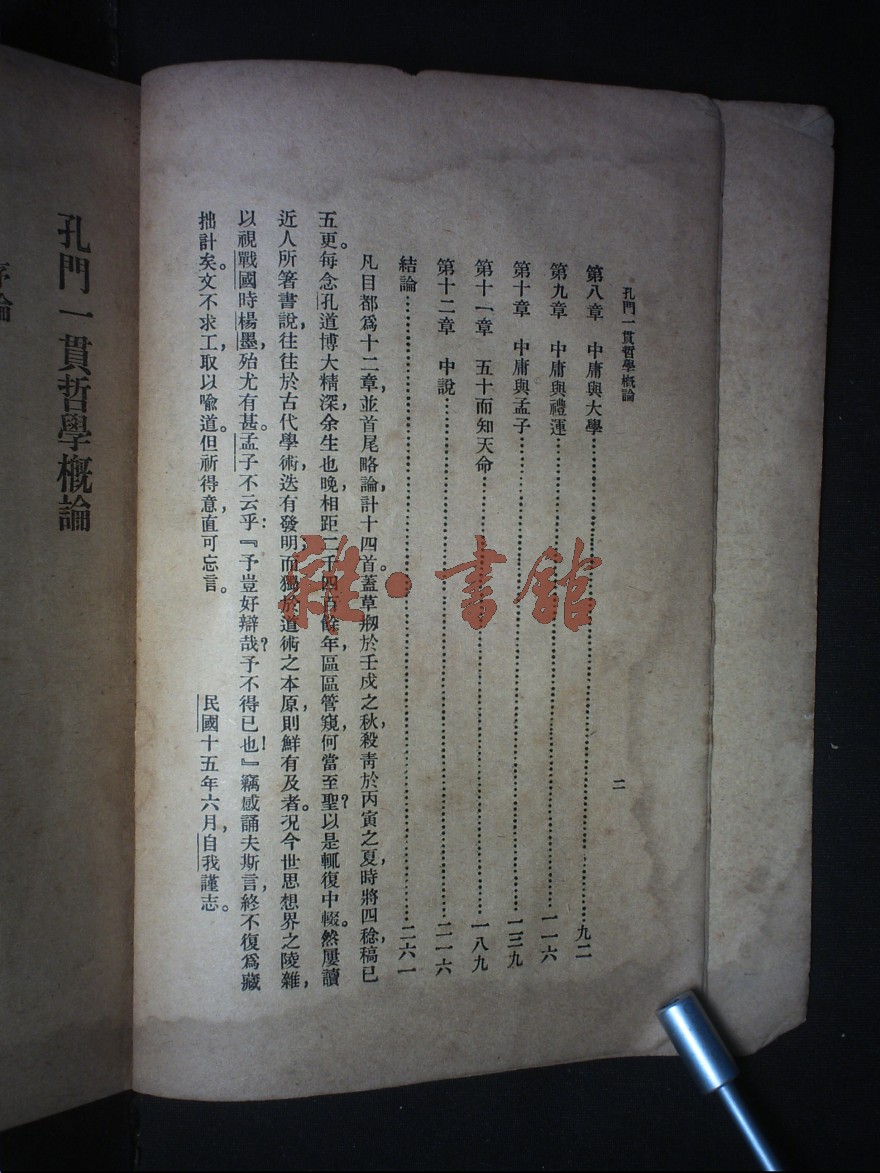 孔門一貫哲學概論
二
第八章　中庸與大學……九二
第九章　中庸與禮運……一一六
第十章　中庸與孟子……一三九
第十一章　五十而知天命……一八九
第十二章　中說……二一六
結論……二六一
凡目都爲十二章，並首尾略論，計十四首。蓋草剏於壬戌之秋，殺青於丙寅之夏，時將四稔，稿已
五更。每念孔道博大精深，余生也晚，相距二千四百餘年，區區管窺，何當至聖？以是輒復中輟。然屢讀
近人所箸書說，往往於古代學術，迭有發明，而獨於道術之本原，則鮮有及者。況今世思想界之陵雜，
以視戰國時楊墨，殆尤有甚。孟子不云乎：『予豈好辯哉？予不得已也！』竊感誦夫斯言，終不復爲藏
拙計矣。文不求工，取以喩道。但祈得意，直可忘言。
民國十五年六月，自我謹志。
孔門一貫哲學概論
序論
雜·書館